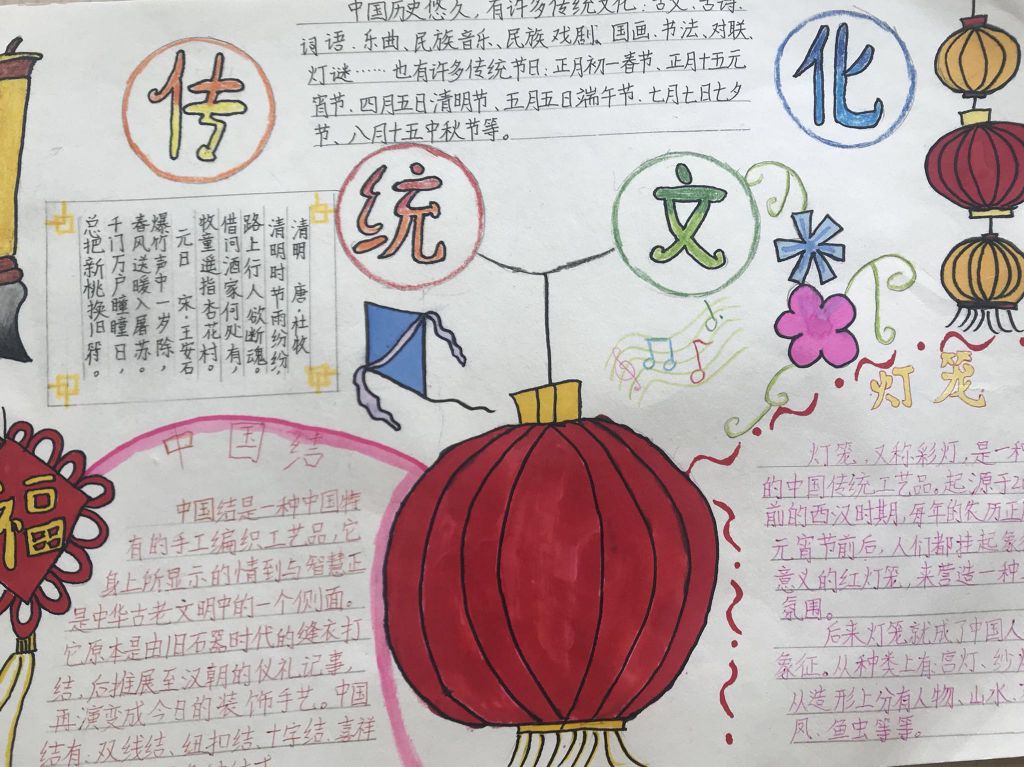 传统文化
中国历史悠久，有许多传统文化：古文、古诗、
词语、乐曲、民族音乐、民族戏剧、国画、书法、对联、
灯谜……也有许多传统节日：正月初一春节、正月十五元
宵节、四月五日清明节、五月五日端午节、七月七日七夕
节、八月十五中秋节等。
清明 唐·杜牧
清明时节雨纷纷，
路上行人欲断魂。
借问酒家何处有，
牧童遥指杏花村。
元日 宋·王安石
爆竹声中一岁除，
春风送暖入屠苏。
千门万户瞳瞳日，
总把新桃换旧符。
福
中国结
中国结是一种中国特
有的手工编织工艺品，它
身上所显示的情到与智慧正
是中华古老文明中的一个侧面。
它原本是由旧石器时代的缝衣打
结，后推展至汉朝的仪礼记事，
再演变成今日的装饰手艺。中国
结有、双线结、纽扣结、十字结、
灯笼
灯笼，又称彩灯，是一种
的中国传统工艺品。起源于
前的西汉时期，每年的农历正
元宵节前后，人们都挂起象
意义的红灯笼，来营造一种
氛围。
后来灯笼就成了中国人
象征。从种类上有：宫灯、纱
从造形上分有人物、山水、
凤、鱼虫等等。